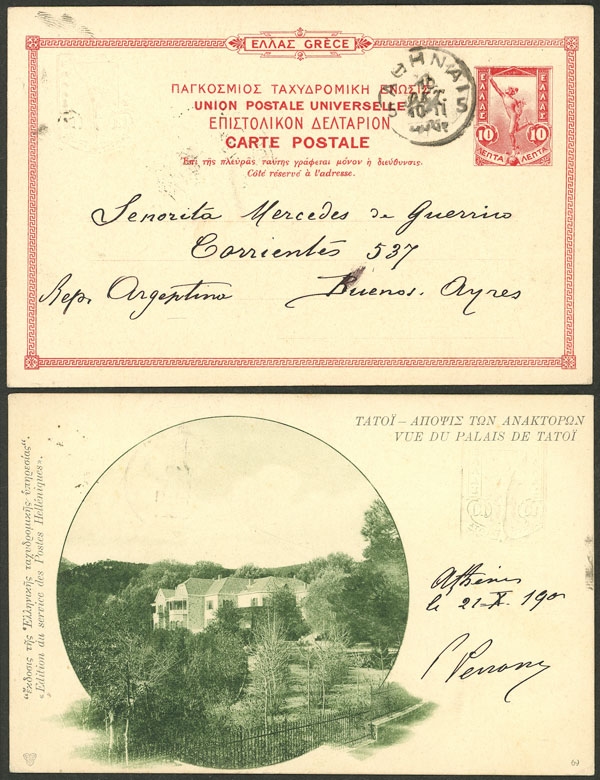 ΕΛΛΑΣ GRÈCE
ΠΑΓΚΟΣΜΙΟΣ ΤΑΧΥΔΡΟΜΙΚΗ ΕΝΩΣΙΣ
UNION POSTALE UNIVERSELLE
ΕΠΙΣΤΟΛΙΚΟΝ ΔΕΛΤΑΡΙΟΝ
CARTE POSTALE
Ἐπὶ τῆς πλευρᾶς ταύτης γράφεται μόνον ἡ διεύθυνσις.
Côté réservé à l'adresse.
ΕΛΛΑΣ
ΕΛΛΑΣ
10
10
ΛΕΠΤΑ
ΛΕΠΤΑ
10-11
Senorita Mercedes de Guerrico
Corrientes 537
Rep. Argentina Buenos-Ayres
ΤΑΤΟΪ – ΑΠΟΨΙΣ ΤΩΝ ΑΝΑΚΤΟΡΩΝ
VUE DU PALAIS DE TATOÏ
„Ἔκδοσις τῆς Ἑλληνικῆς ταχυδρομικῆς ὑπηρεσίας".
«Édition du service des Postes Helléniques».
Athènes
le 21-X-190